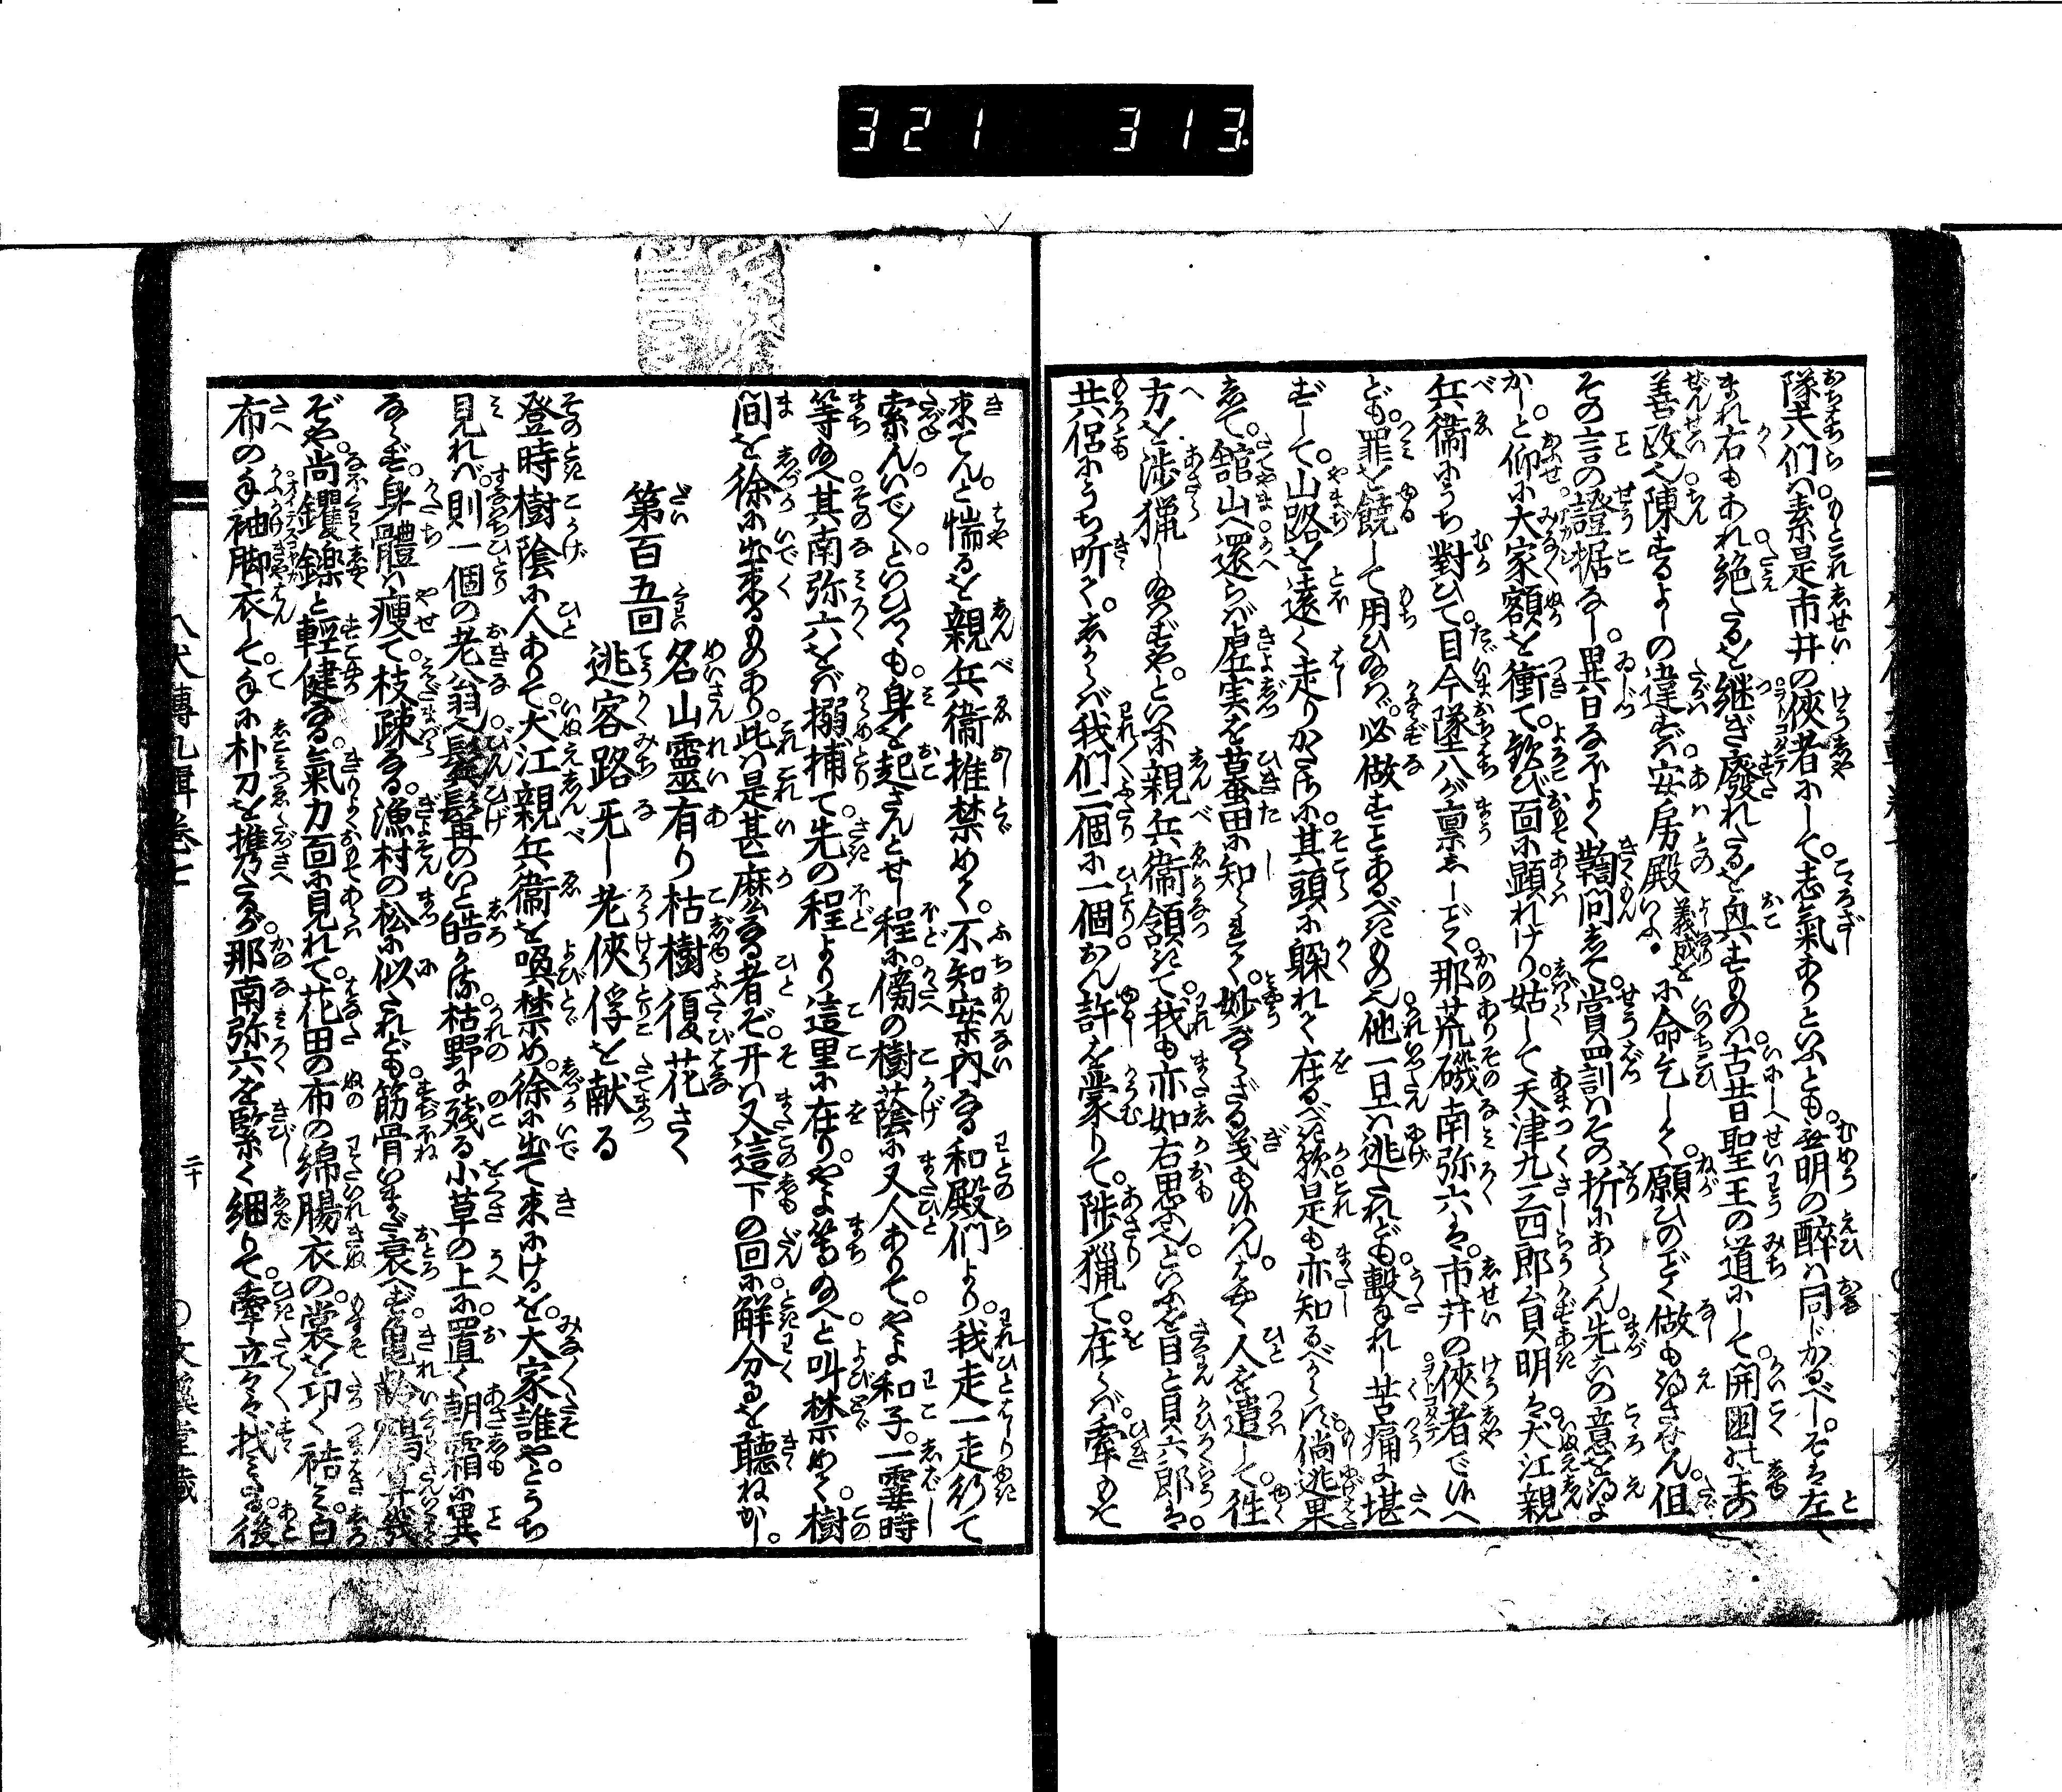 321 313.
隊六们ハ素是市井の俠者にして。志氣ありといふとも。無明の醉ハ同じかるべし。そを左
まれ右もあれ絶たるを継ぎ廢れたるを興すものハ。古昔聖王の道にして。開國
善政也。陳ずるよしの違ずハ。安房殿いふ。義成を に命乞しく。願ひのごとく做も得させん。但
その言の證据なし。異日なほよく鞫問して。賞罰ハその折にあらん。先この意を得よ
かし。と仰に大家額を衝て。歓び面に顕れけり。姑して天津九三四郎員明ハ。犬江親
兵衞にうち對ひて。目今墜八が禀ししごとく。那荒磯南弥六ハ。市井の俠者で候へ
ども。罪を饒して用ひ給ハヾ。必做すことあるべきもの也。他一旦ハ逃たれども。毄れし苦痛に堪
ずして。山路を遠く走りかたさに。其頭に躱れて在るべき歟。是も亦知るべからず。倘逃果
して。舘山へ還らバ虚実を蟇田に知られて。妙ならざる義も候ハん。とく人を遣して。徃
方を渉獵し給ハずや。といふに親兵衞領きて。我も亦如右思へ。といふを目と員六郎ハ。
共侶にうち听く。しからバ我们二個に一個。おん許を蒙りて。陟獵て在らバ。牽もて
来てん。と惴るを親兵衞推禁めて。不知案内なる和殿们より。我走一走紆て
索ん。いでや。といひつゝも。身を起さんとせし程に。傍の樹蔭に又人ありて。やよ和子。一霎時
等給へ。其南弥六をバ搦捕て。先の程より這里に在り。やよ等給へと叫禁めて。樹
間を徐に出来るものあり。此ハ是甚麼なる者ぞ。开ハ又這下の回に解分るを聽ねかし。
第百五回 名山靈有り枯樹復花さく
逃客路旡し老俠俘を献る
登時樹陰に人ありて。犬江親兵衞を喚禁め。徐に出て来にけるを。大家誰や。とうち
見れバ。則一個の老翁也。鬢髯のいと皓かる。枯野に残る小草の上に置く朝霜に異
ならず。身體ハ瘦て。枝疎なる。漁村の松に似たれども。筋骨いまだ衰へず。亀齡鶴算幾
ぞや。尚钁鑠と輕健なる。氣力面に見れて。花田の布の綿腸衣の。裳を卭く褚て。白
布の手袖脚衣して。手に朴刀を携たるが。那南弥六を緊く細りて。牽立々々找たる。後
八犬傳九輯卷七
二十
○文溪堂藏